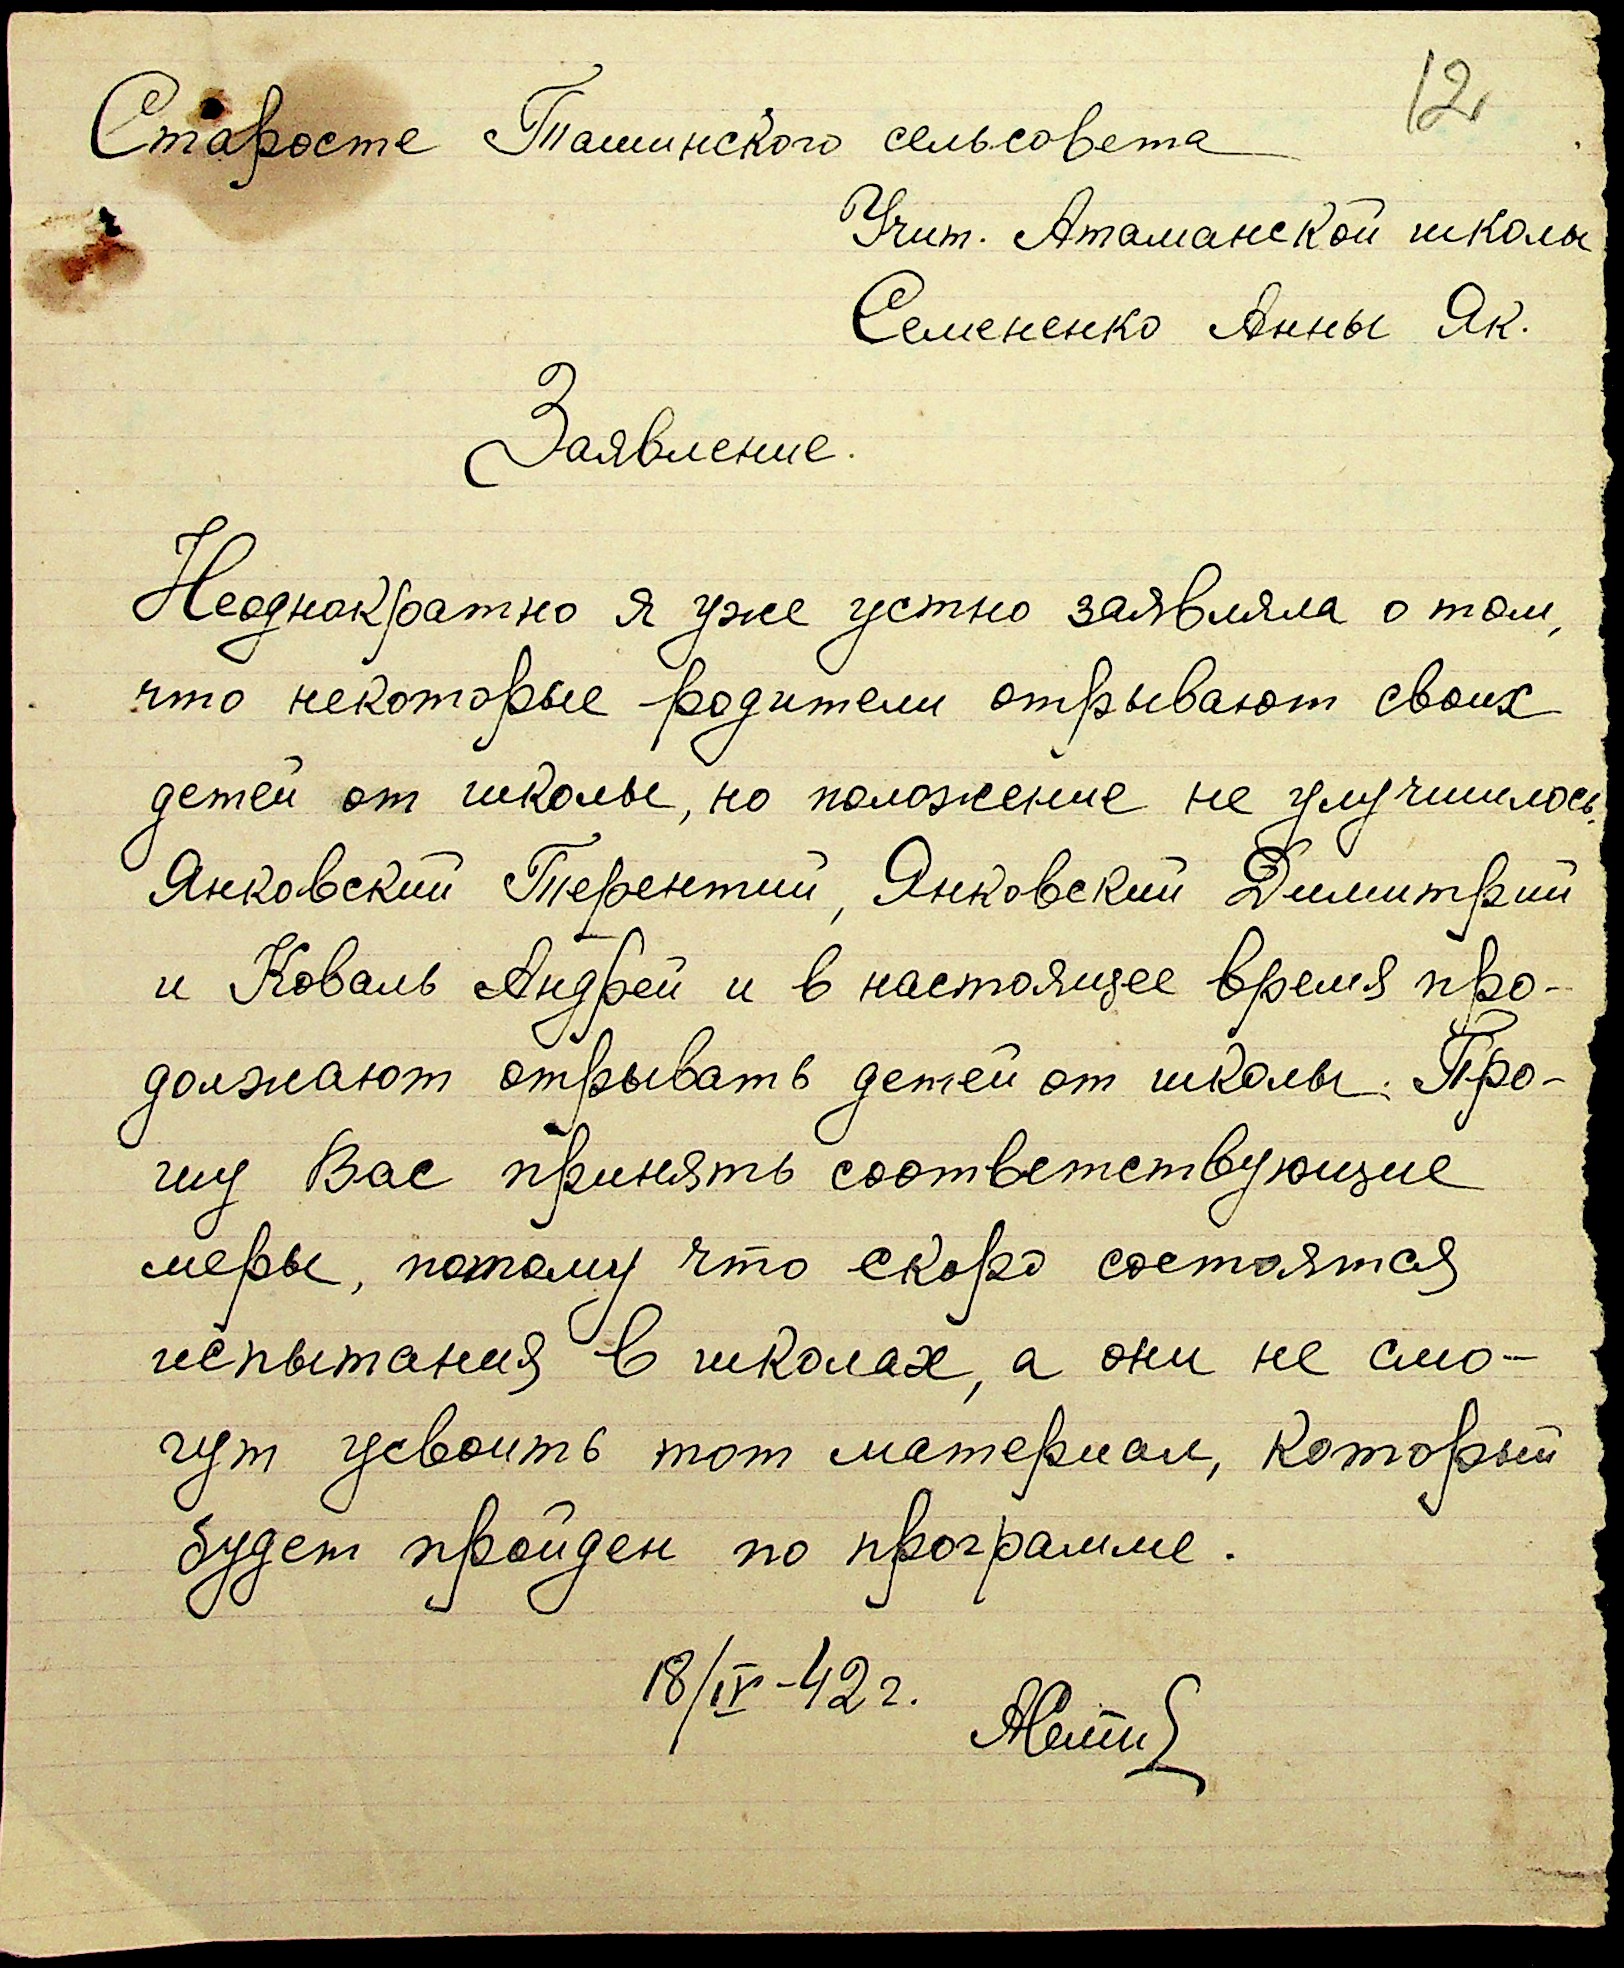 12
Старосте Ташинского сельсовета
Учит. Атаманской школы
Семененко Анны Як.
Заявление.
Неоднократно я уже устно заявляла о том,
что некоторые родители отрывают своих
детей от школы, но положение не улучшилось.
Янковский Терентий, Янковский Димитрий
и Коваль Андрей и в настоящее время про-
должают отрывать детей от школы. Про-
шу Вас принять соответствующие
меры, потому что скоро состоятся
испытания в школах, а они не смо-
гут усвоить тот материал, который
будет пройден по программе.
18/IV-42 г.